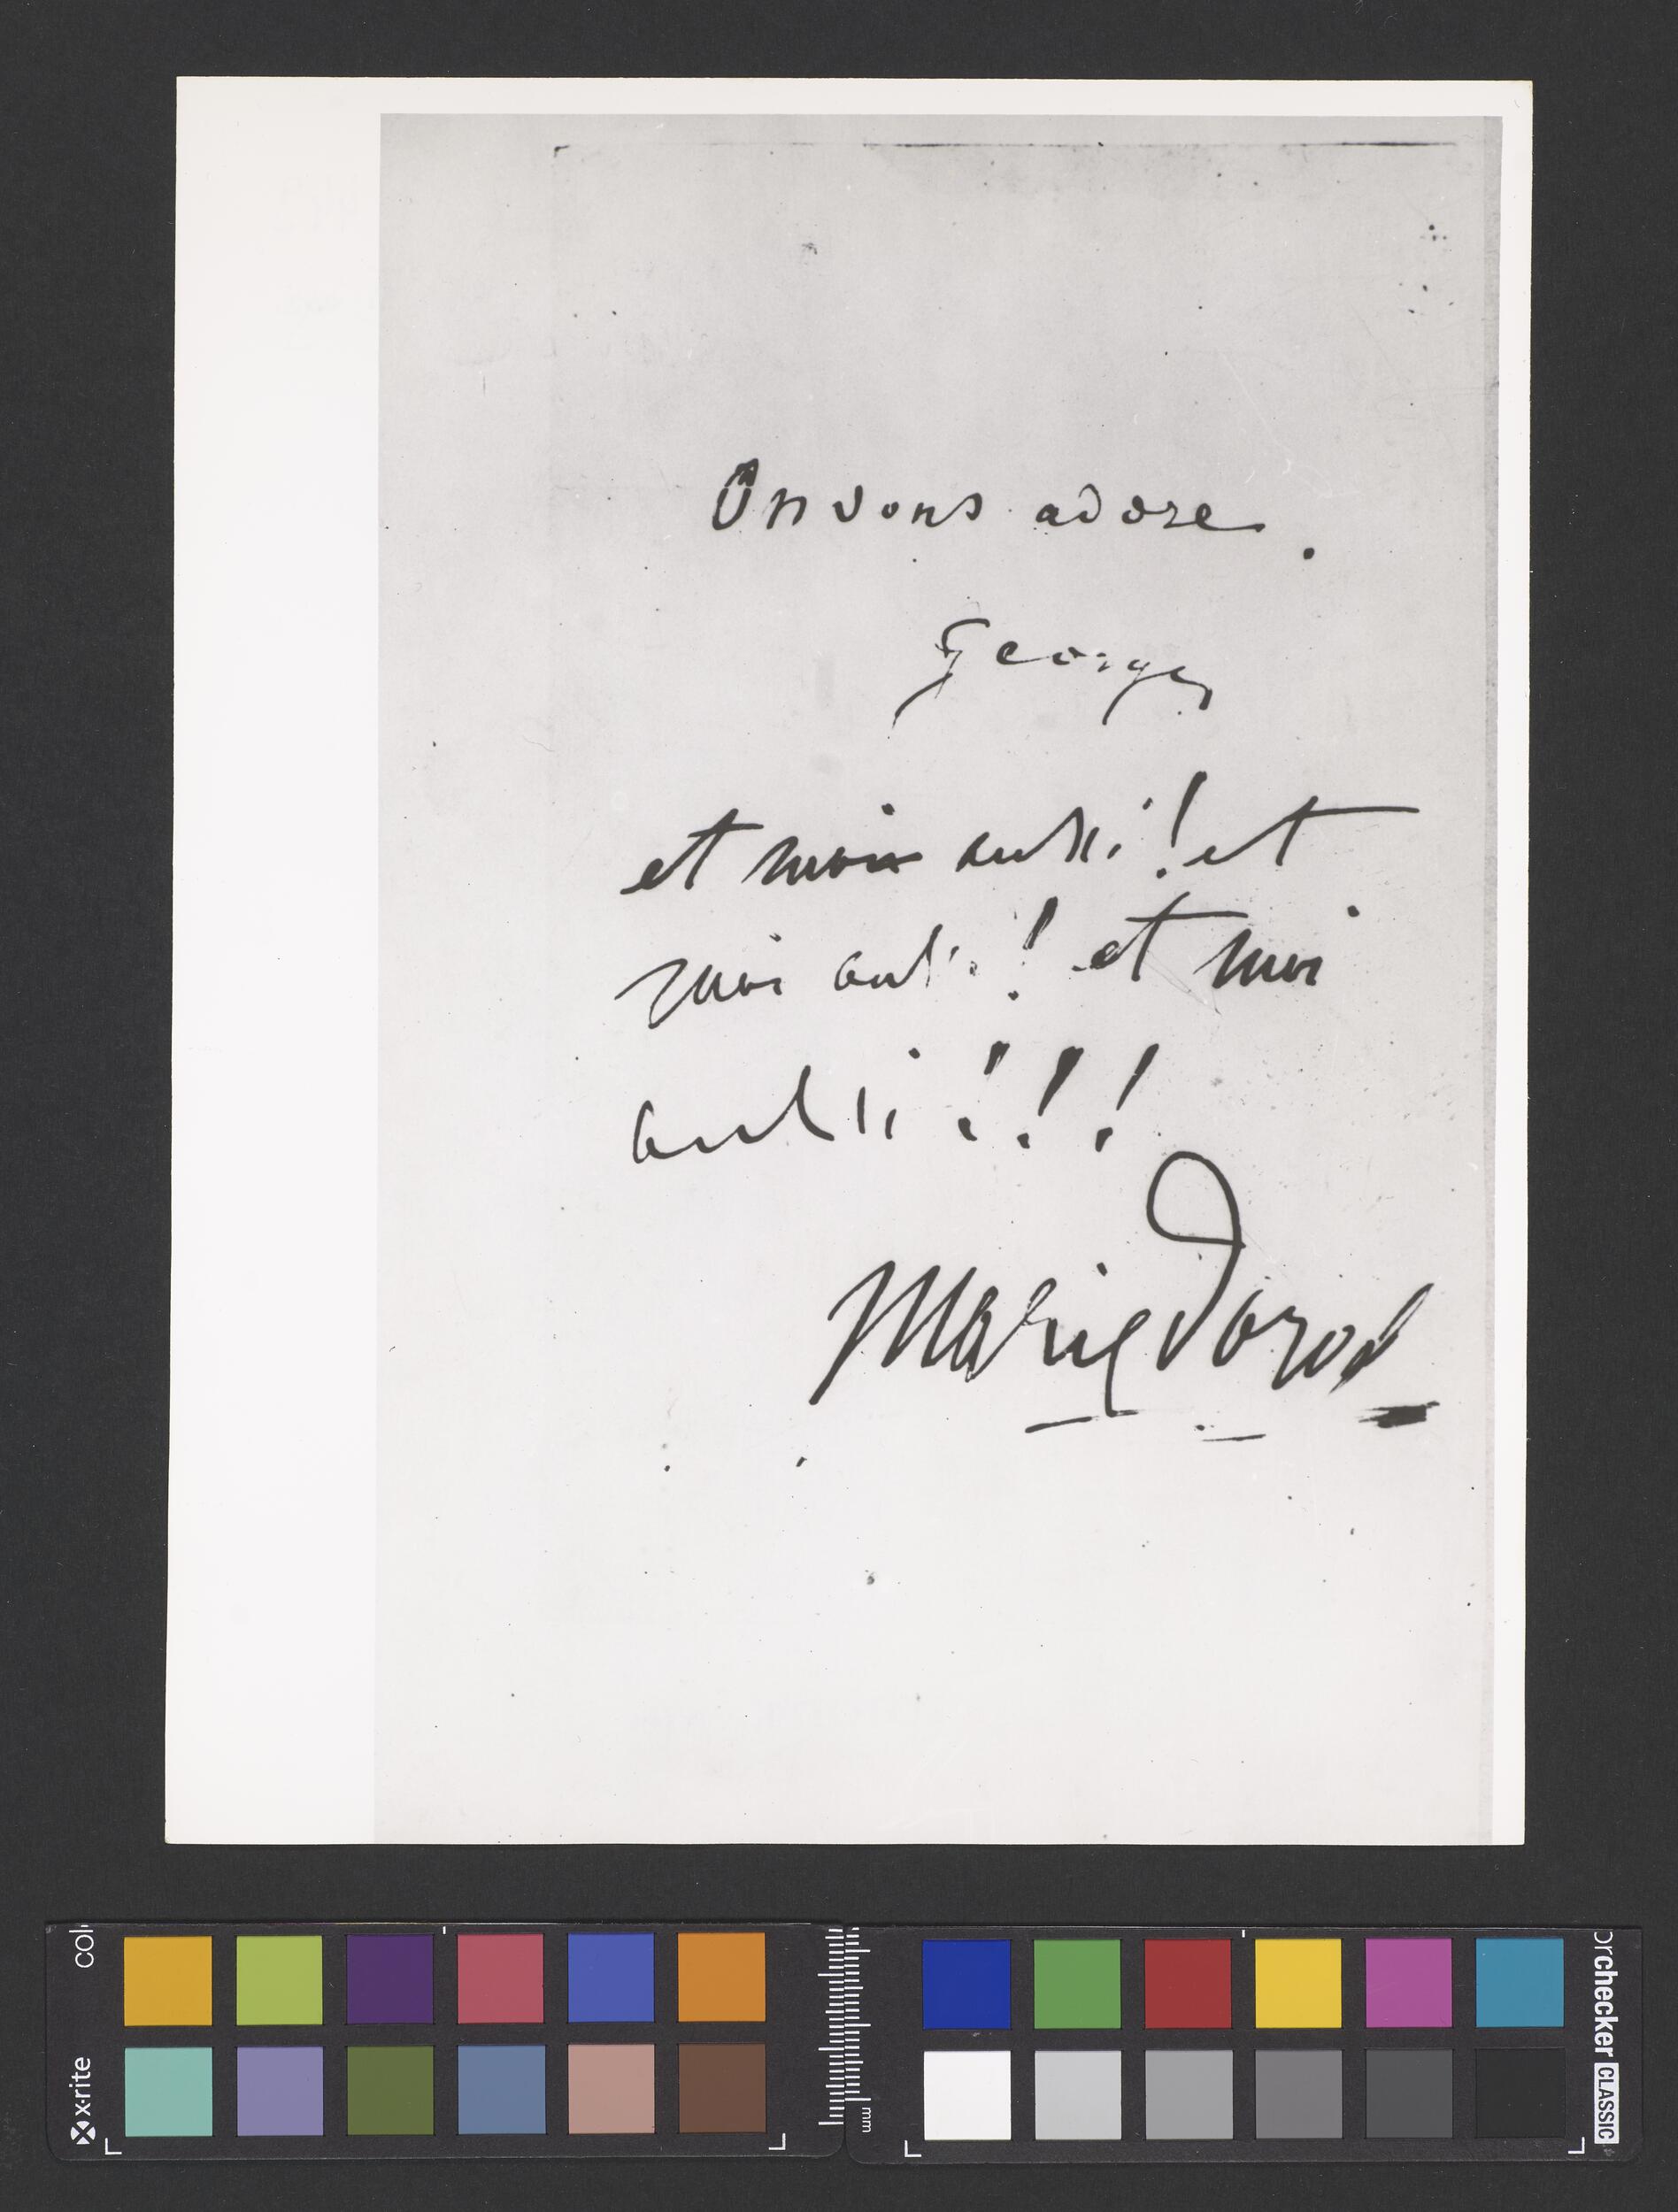 On vous adore.
George
et moi aussi! et
moi aussi! et moi
aussi!!!
Marie Dorval
x·rite
mm
CLASSIC